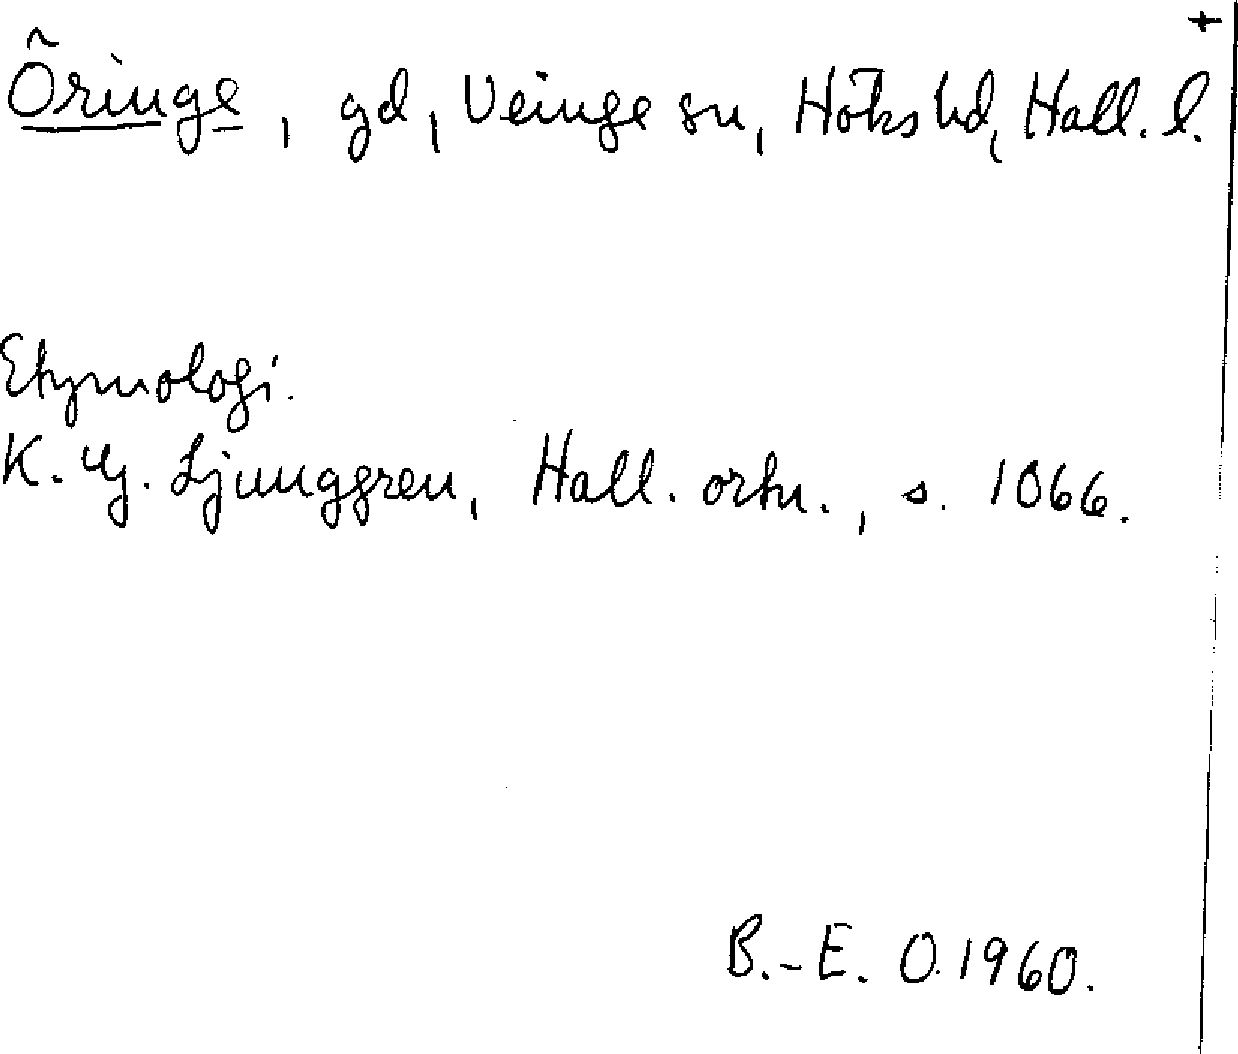 +
Öringe, gd, Veinge sn, Höks hd, Hall. l.
Etymologi.
K. G. Ljunggren, Hall. ortn., s. 1066.
B.-E. O. 1960.